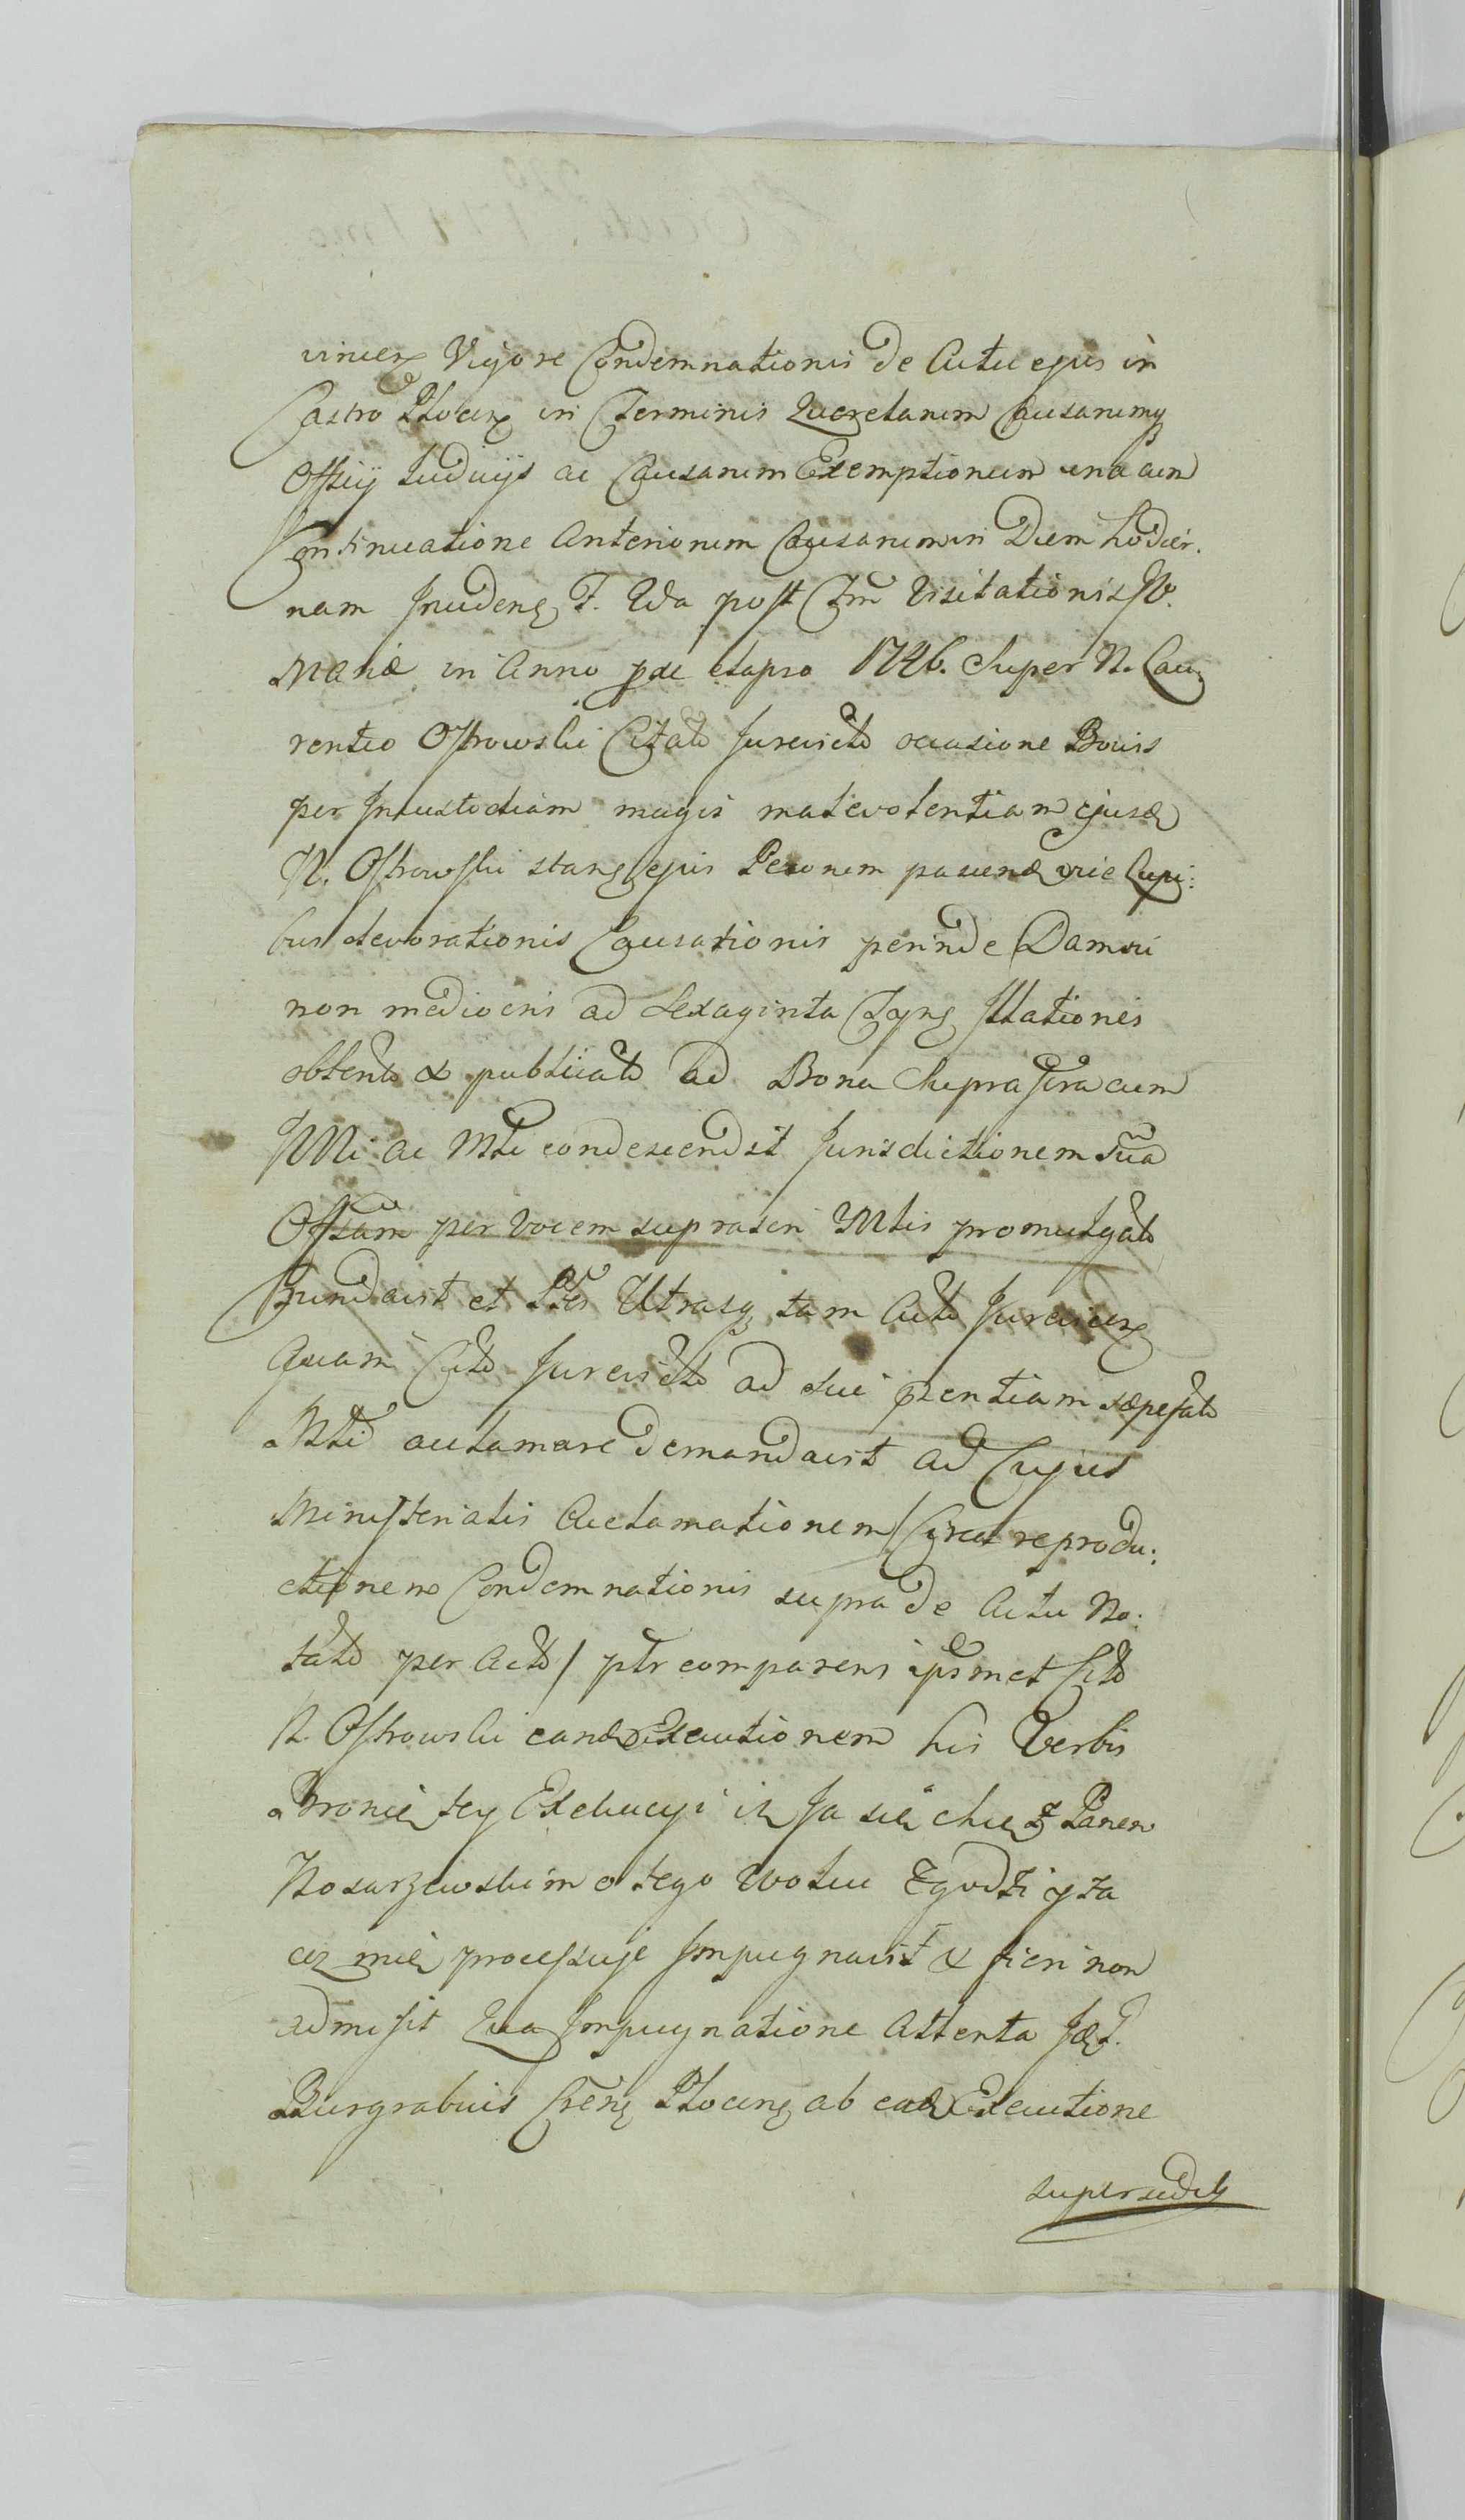 vincen Vigore Condemnationis de Actu ejus in
Castro Plocen in Terminis Querelarum Causarumq
Officij Judicijs ac Causarum Exemptionum una cum
Continuatione Anteriorum Causarum in Diem hodier.
nam Inciden F. 2da post Ftm Visitationis B.
Mariæ in Anno pde elapso 1746. Super N. Lau:
rentio Ostrowski Citato Jurevicto occasione Bovis
per Incustodiam magis malevolentiam ejusd
N. Ostrowski stans ejus Pecorum pascend vice Lupi:
bus devorationis Causationis perinde Damni
non mediocris ad Sexaginta Tynf Illationis
obtento & publicato ad Bona Suprascra cum
Nli ac Mli condescendit Jurisdictionem suã
Offsam per Vocem suprascri Mlis promulgato
Fundavit et Ptes Utrasq tam Acto Jurevicen
Quam Cito Jurevicto ad sui pzentiam sæpefato
Mli aclamare demandavit ad Cujus
Ministerialis Acclamationem / Circa reprodu:
ctionem Condemnationis supra de Actu No:
tato per Acto / ptr comparens ipsmet Cito
N. Ostrowski eand Executionem his Verbis
Bronię tey Exekucyi iż Ja się chcę z Panem
Nosarzewskim o tego Wołu Zgodzić y za
coż mię processuje Impugnavit & fieri non
admisit Qua Impugnatione Attenta Idt.
Burgrabius Cren Plocens ab ead Executione
supersedit